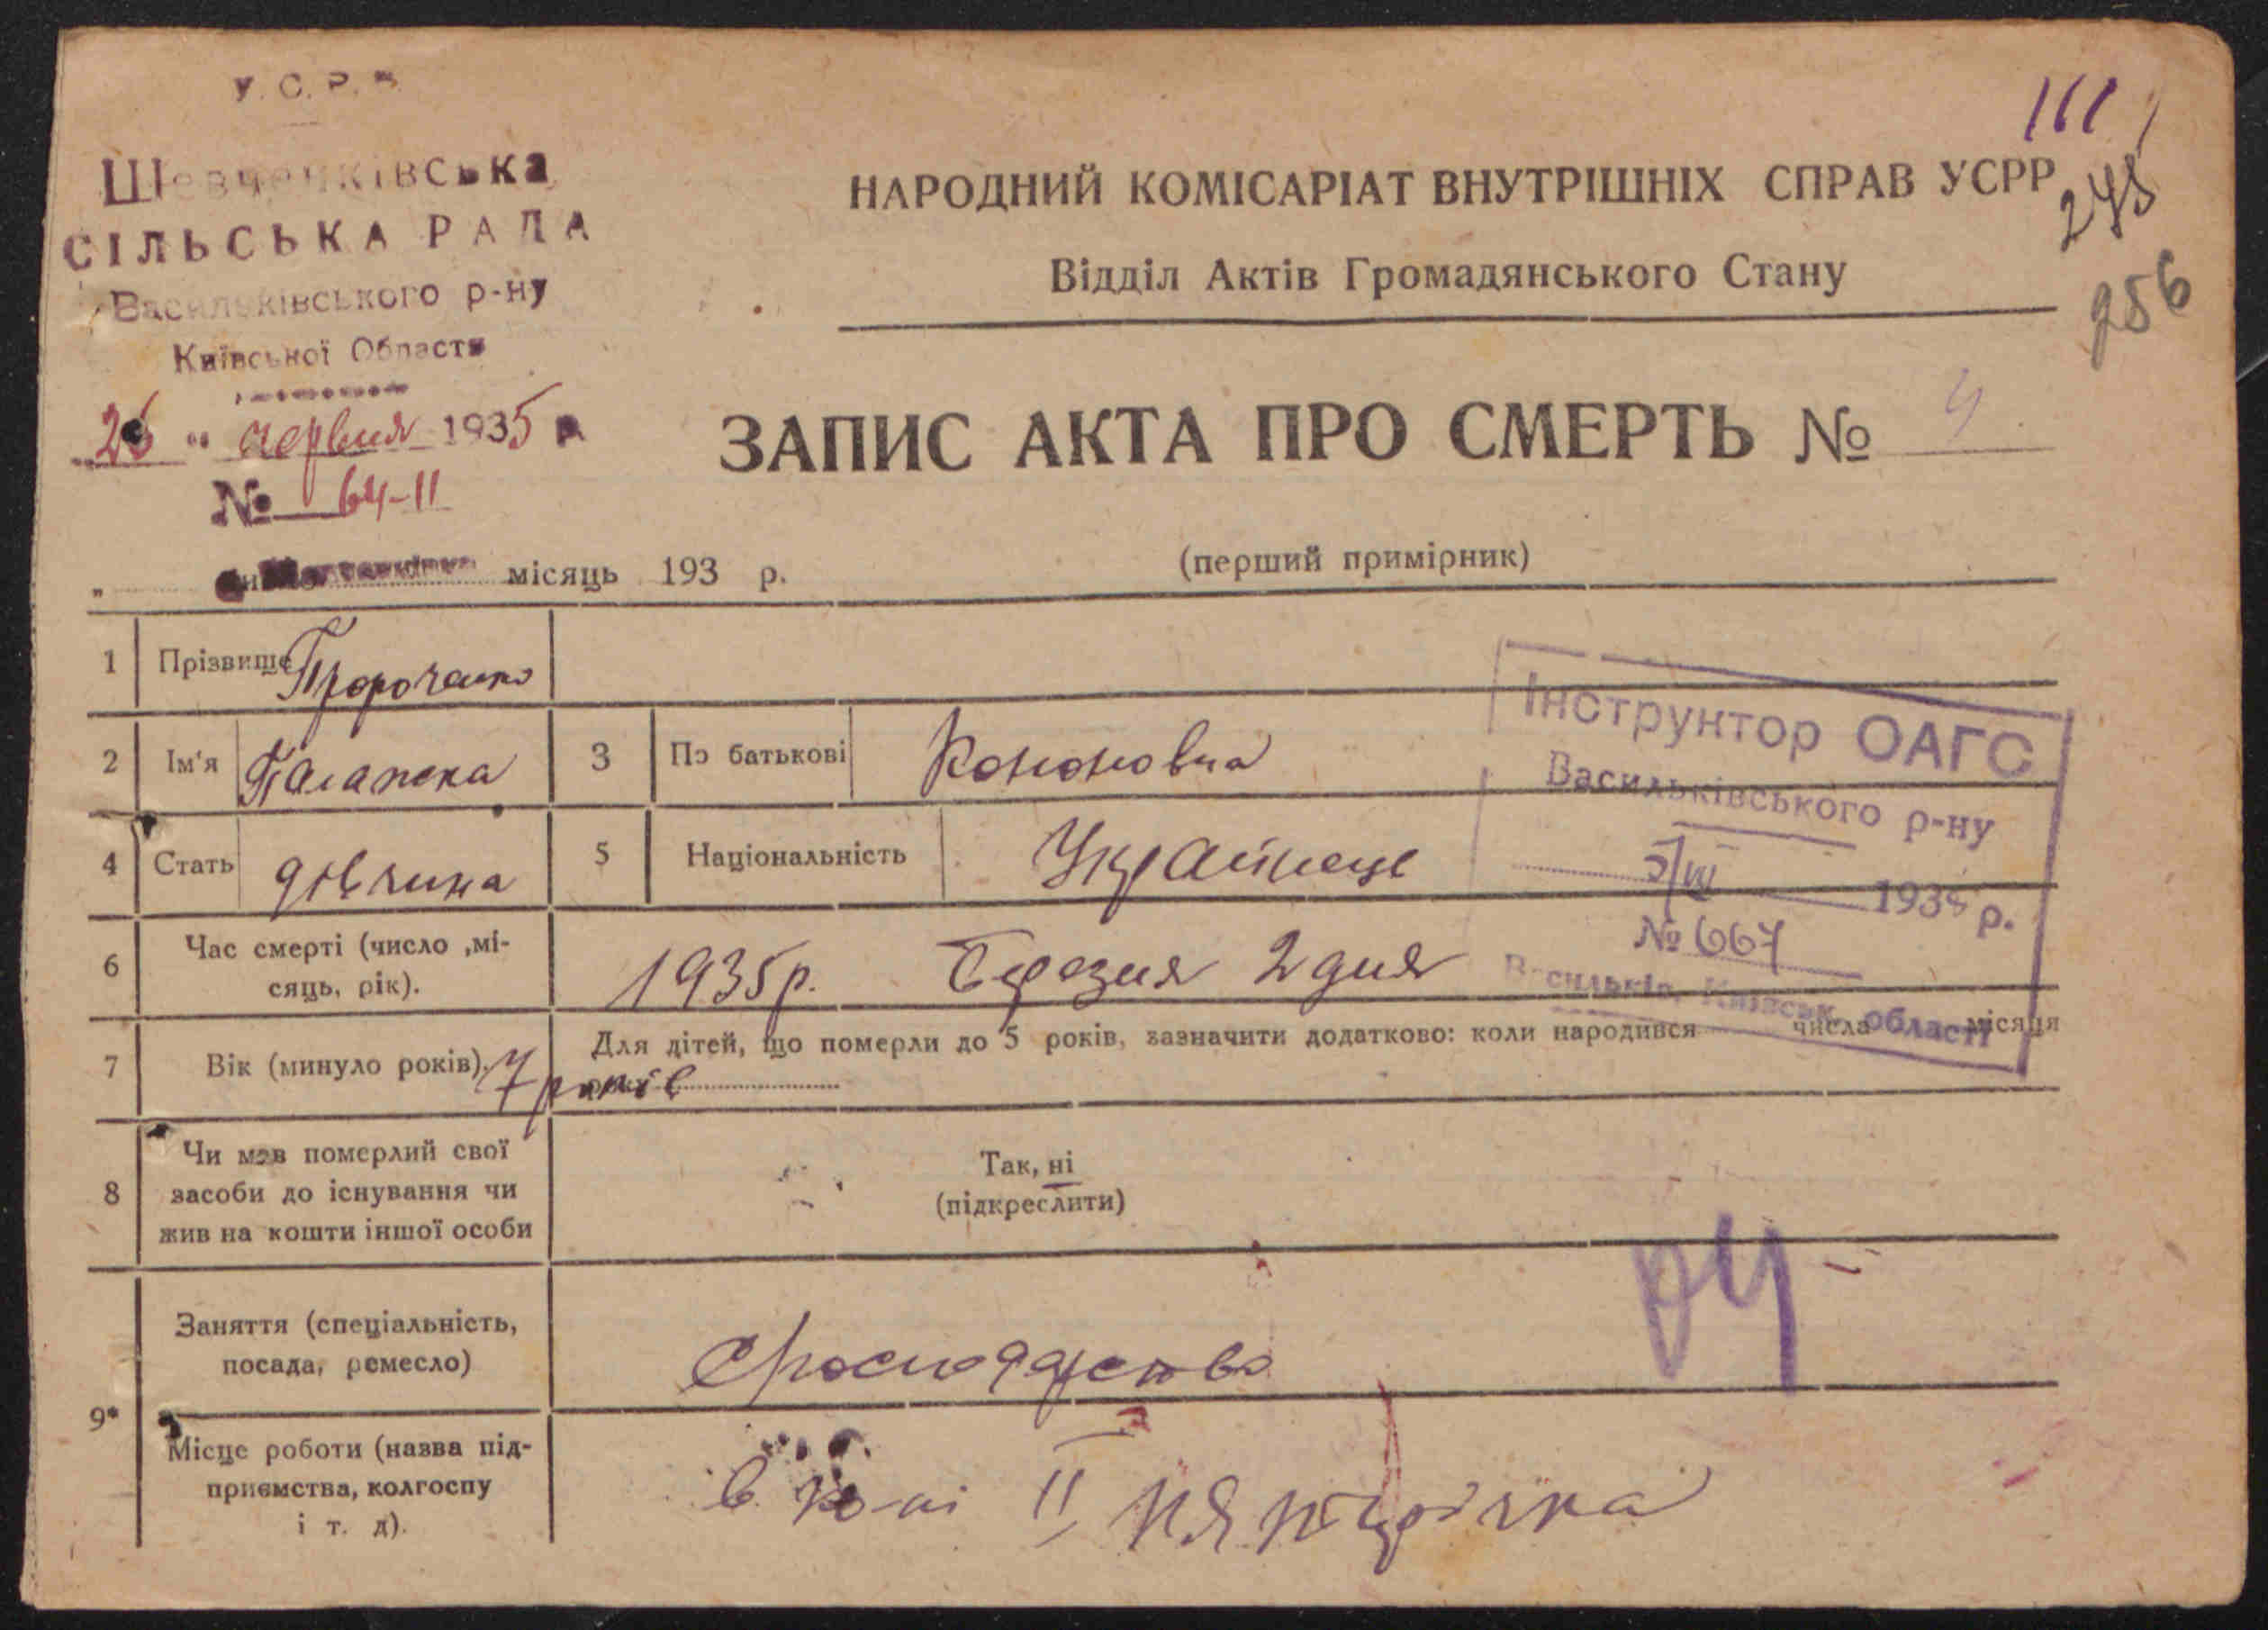 У. С. Р. Р.
Шевченківська
СІЛЬСЬКА РАДА
Васильківського р-ну
Київської Области
"25" червня 1935 р.
№ 64-11
111
НАРОДНИЙ КОМІСАРІАТ ВНУТРІШНІХ СПРАВ УСРР
Відділ Актів Громадянського Стану
256
ЗАПИС АКТА ПРО СМЕРТЬ № 4
місяць 193 р.
(перший примірник)
1 Прізвище Пророченко
2 Ім'я Палажка 3 По батькові Кононовна
4 Стать дівчина 5 Національність Українець
6 Час смерті (число ,мі-
сяць, рік). 1935р. Березня 2 дня
7 Вік (минуло років). 7 років Для дітей, що померли до 5 років, зазначити додатково: коли народився числа місяця
року
8 Чи мав померлий свої
засоби до існування чи
жив на кошти іншої особи
Так, ні
(підкреслити)
9* Заняття (спеціальність,
посада, ремесло)
Місце роботи (назва під-
приємства, колгоспу
і т. д).
в к-пі II пятирічка
Інструктор ОАГС
Васильківського р-ну
193 р.
№ 667
Васильків, Київськ. області